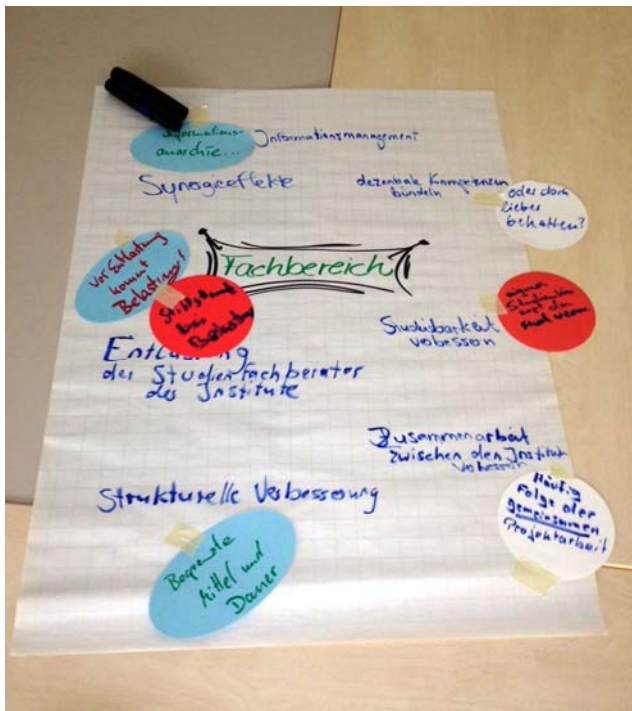 Informations-
anarchie...
Informationsmanagement
Synergieeffekte
dezentrale Kompetenzen
bündeln
oder doch
lieber
behalten?
Vor Entlastung
kommt
Belastung!
Fachbereich
bei
Studierbarkeit
verbessern
Entlastung
der Studienfachberater
der Institute
Zusammenarbeit
zwischen den Institut
verbessern
Häufig
Folge der
gemeinsamen
Projektarbeit
Strukturelle Verbesserung
Begrenzte
Mittel und
Dauer